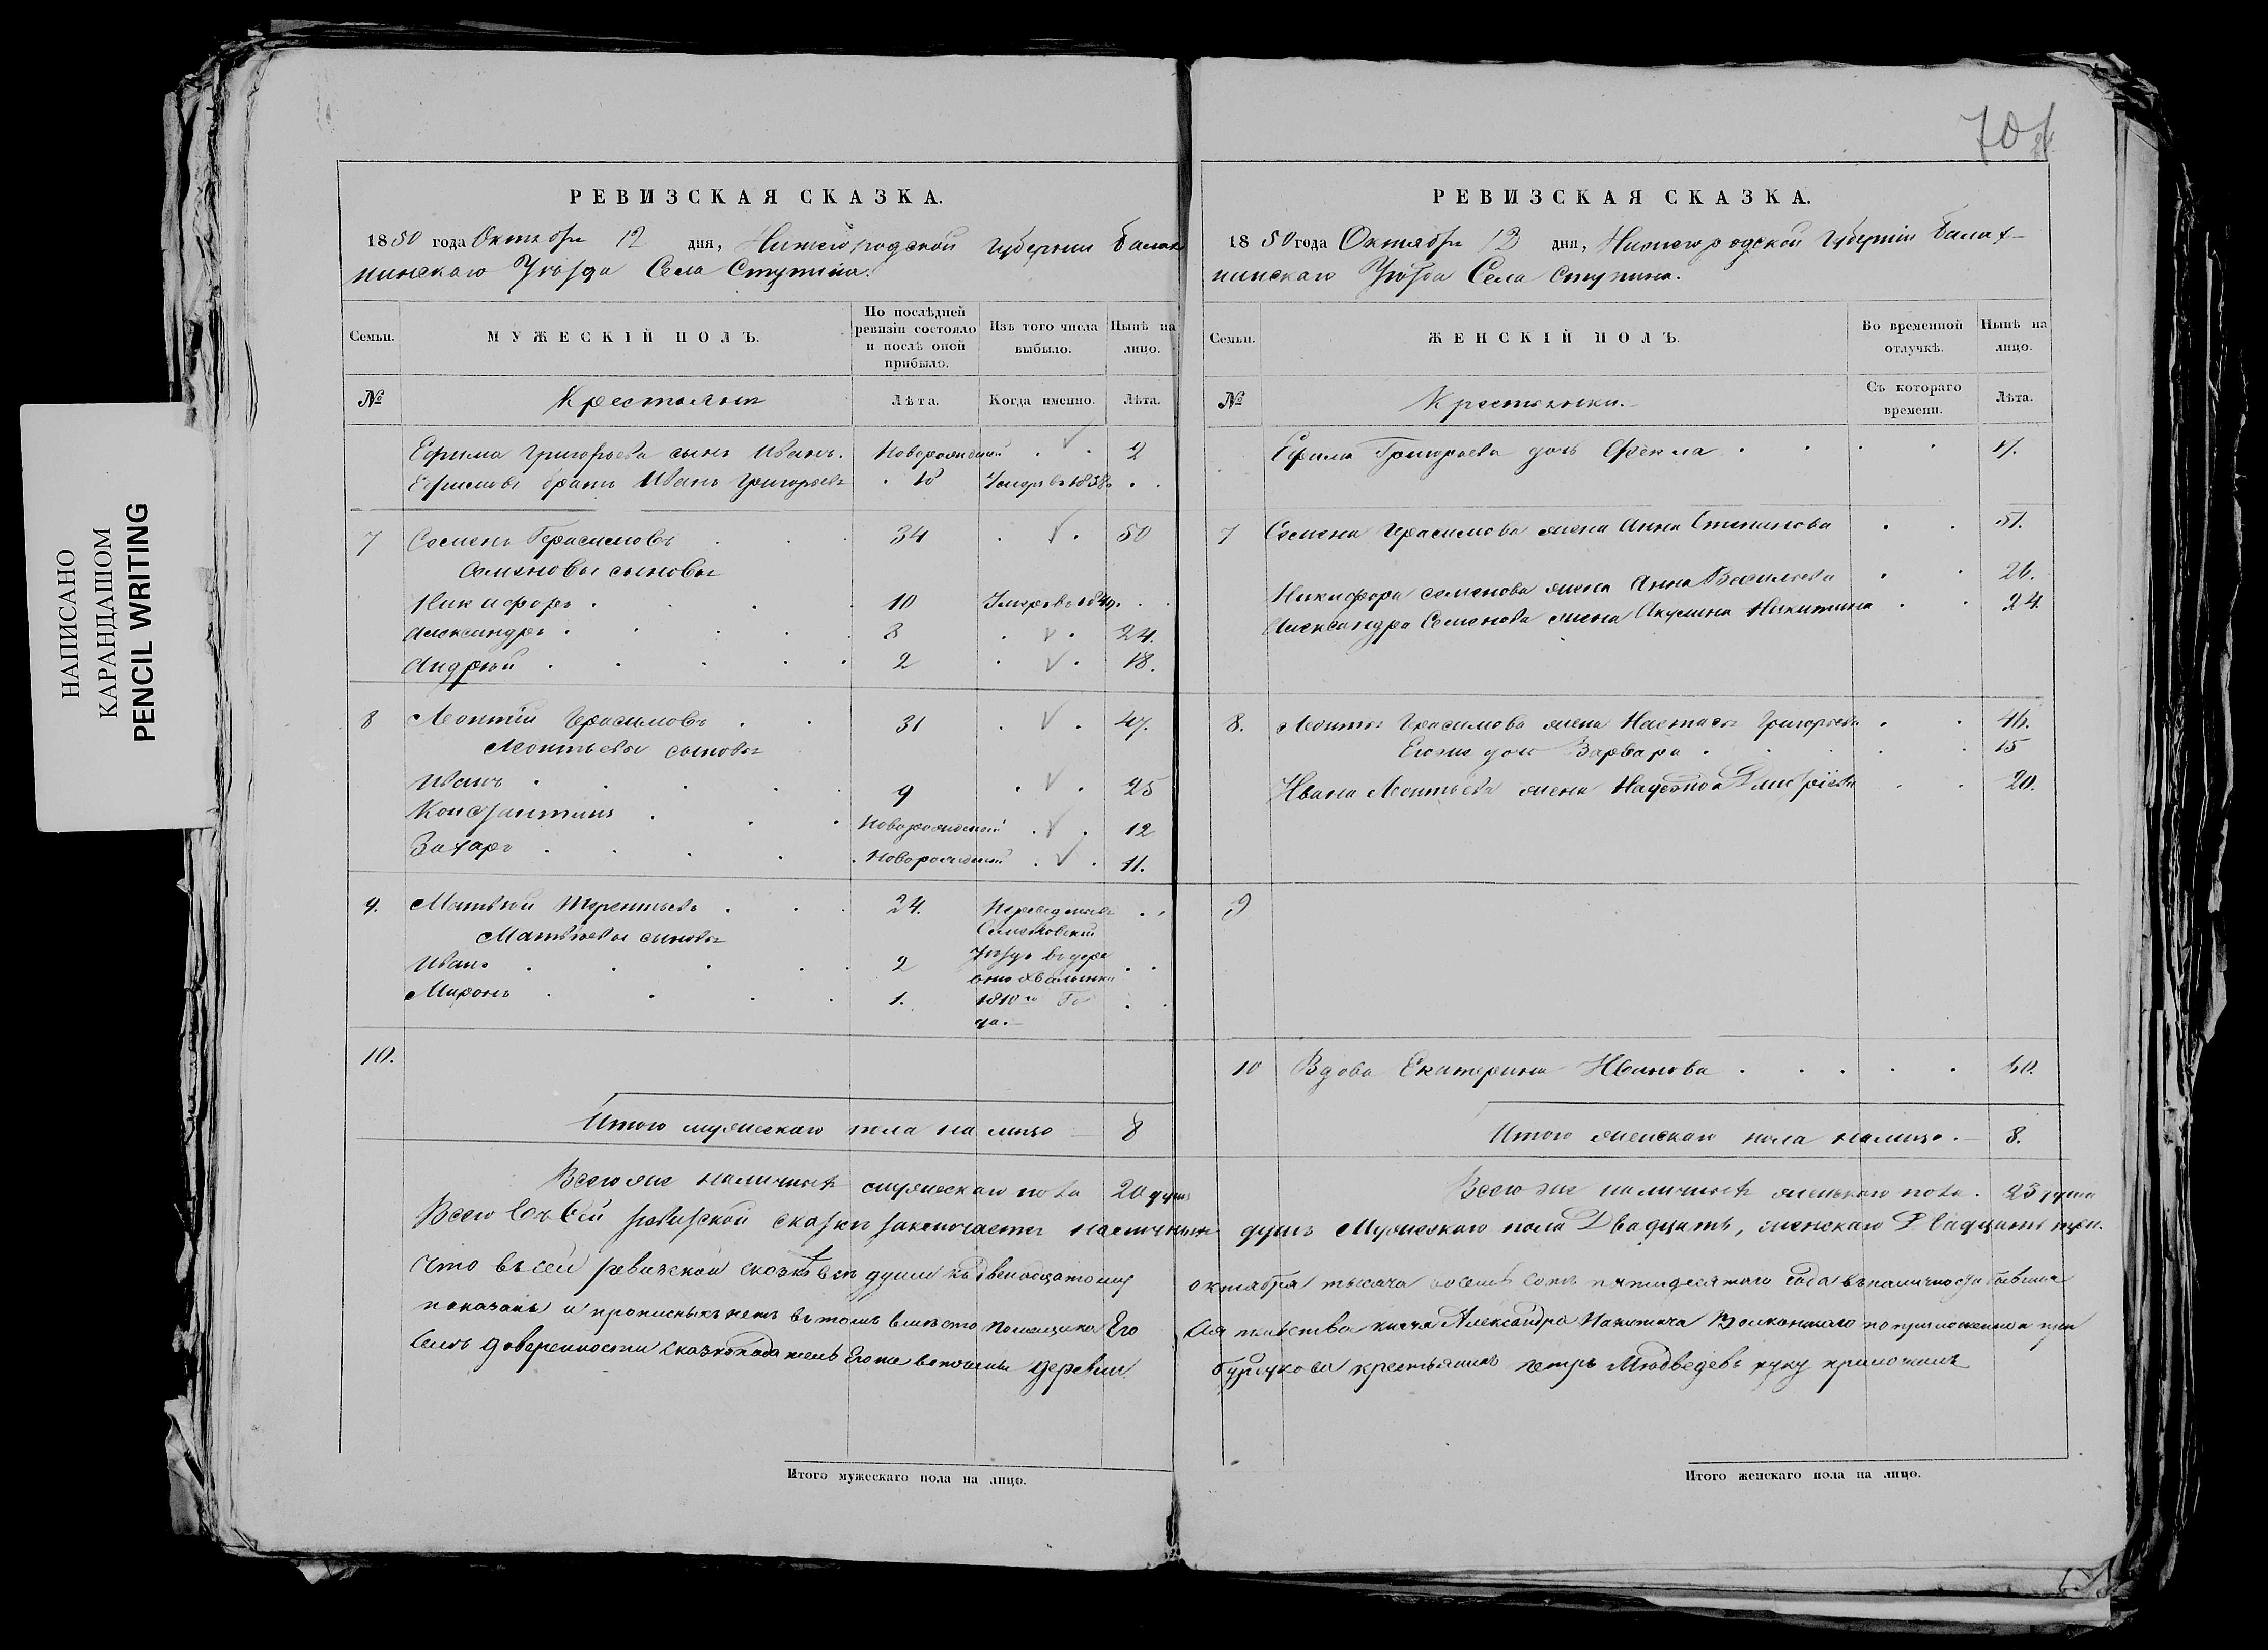 НАПИСАНО
КАРАНДАШОМ
PENCIL WRITING
70
РЕВИЗСКАЯ СКАЗКА.
1850 года Октября 12 дня, Нижегородской Губернии Балах
нинскаго Уѣзда Села Ступина.
Семьи.
МУЖЕСКІЙ ПОЛЪ.
По послѣдней ревизіи состояло и послѣ оной прибыло.
Изъ того числа выбыло.
Нынѣ на лицо.
№
Крестьяне
Лѣта.
Когда именно.
Лѣта.
Ефима Григорьева сынъ Иванъ. Новорожденный 2
Ефимовъ братъ Иванъ Григорьевъ Умеръ въ 1838
7 Семенъ Герасимовъ 34 50
Семеновы сыновья
Никифоръ 10 Умеръ въ
Александръ 8 24.
Андрей 2 18.
8 Леонтій Герасимовъ 31 47.
Леонтьевы сыновья
Иванъ 9 25
Константинъ Новорожденный 12
Захаръ Новорожденный 11.
9. Матвѣй Терентьевъ 24. Переведены въ
Матвѣевы сыновья Семеновскій
Иванъ 2 Уѣздъ въ дере
Миронъ 1.
да.
10.
Итого мужескаго пола на лицо 8
Всего же наличныхъ мужескаго пола 20 душъ
Всего въ сей ревизской сказкѣ заключается наличныхъ
Что въ сей ревизской сказкѣ всѣ души къ двенадцатому
показаны и прописныхъ нетъ въ томъ вместо помещика Его
доверенности сказкоподатель Его же вотчины деревни
Итого мужескаго пола на лицо.
РЕВИЗСКАЯ СКАЗКА.
1850 года Октября 12 дня, Нижегородской Губерніи Балах-
нинскаго Уѣзда Села Ступина.
Семьи.
ЖЕНСКІЙ ПОЛЪ.
Во временной отлучкѣ.
Нынѣ на лицо.
№
Крестьянки.
Съ котораго времени.
Лѣта.
Ефима Григорьева дочь Фекла
7 Семена Герасимова жена Анна Степанова 51.
Никифора Семенова жена Анна Васильева 26.
Александра Семенова жена Акулина Никитина 24.
8. Леонтья Герасимова жена Настасья Григорьева 46.
Его же дочь Варвара 15
Ивана Леонтьева жена Надежда Дмитріева 20.
9
10 Вдова Екатерина Иванова
Итого женскаго пола на лицо. 8.
Всего же наличныхъ женскаго пола. 23 души
душъ Мужескаго пола Двадцать, женскаго Двадцать три.
октября тысяча восемь сотъ пятидесятаго года въ наличности бывшие
Сіятельства князя Александра Волконскаго по приложенной при
крестьянинъ Петръ Медведевъ руку приложилъ
Итого женскаго пола на лицо.